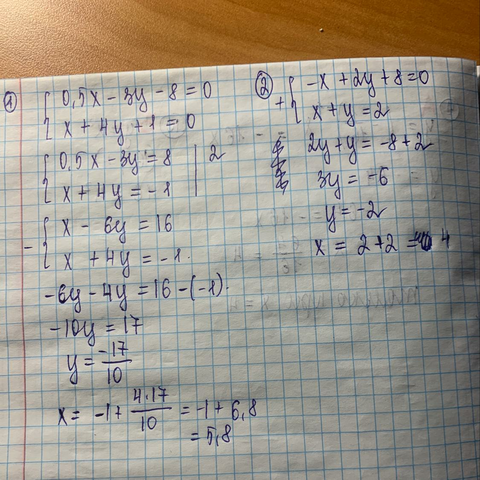 ① { 0,5x - 3y - 8 = 0
{ x + 4y + 1 = 0
{ 0,5x - 3y = 8 | 2
{ x + 4y = -1
- { x - 6y = 16
{ x + 4y = -1.
-6y - 4y = 16 - (-1).
-10y = 17
y = -17/10
x = -1 + 4·17/10 = -1 + 6,8
= 5,8
② + { -x + 2y + 8 = 0
{ x + y = 2
2y + y = -8 + 2
3y = -6
y = -2
x = 2 + 2 = 4